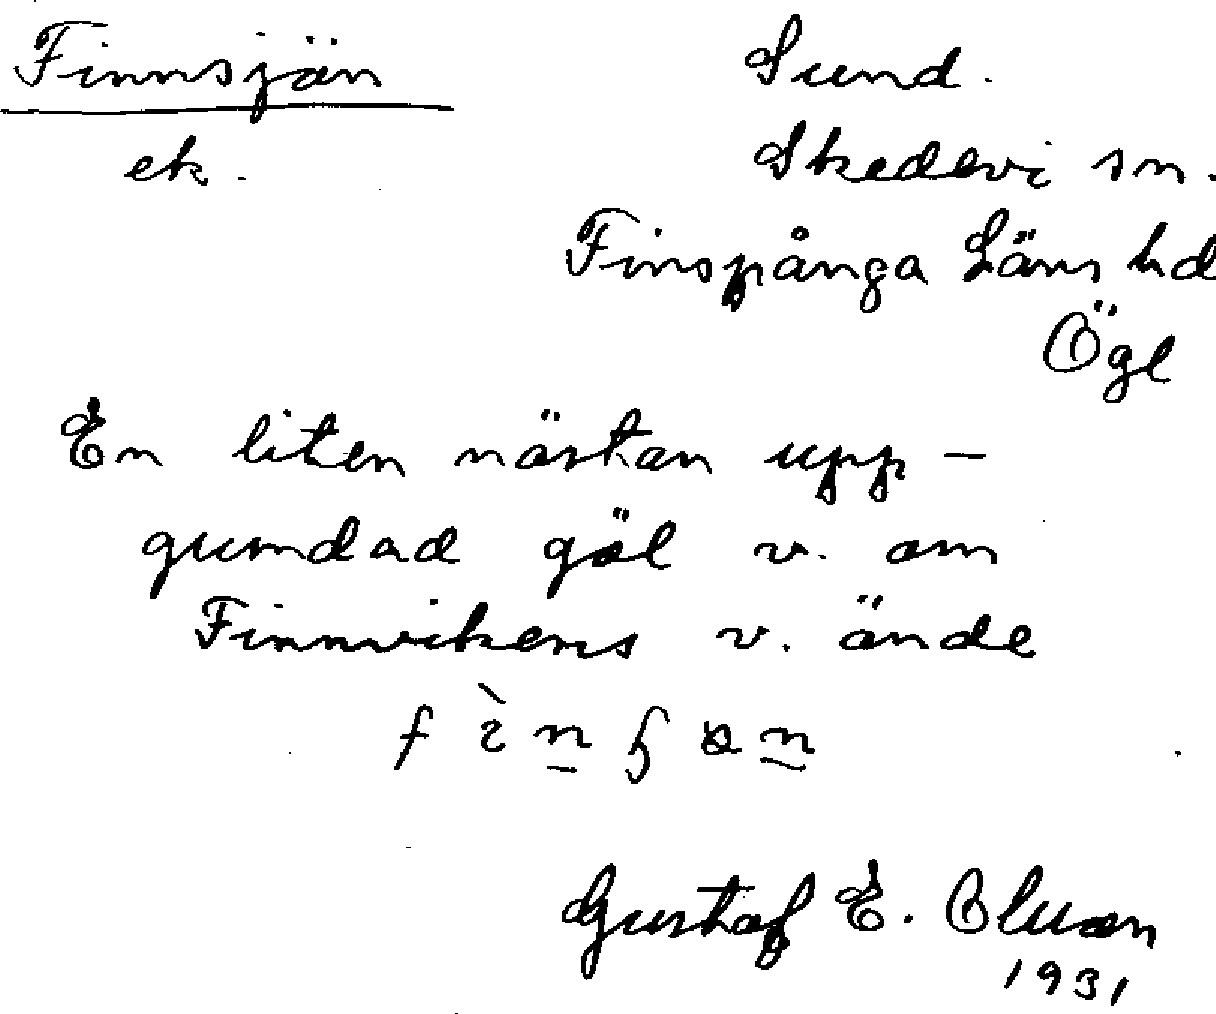 Finnsjön Sund.
ek. Skedevi sn.
Finspånga Läns hd
Ögl
En liten nästan upp-
grundad göl v. om
Finnvikens v. ände
Gustaf E. Olsson
1931